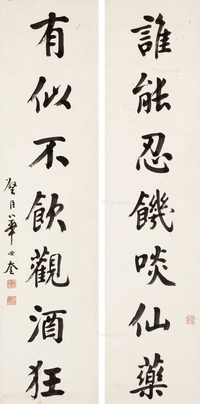 誰能忍饑啖仙藥
有似不飲觀酒狂
華世奎